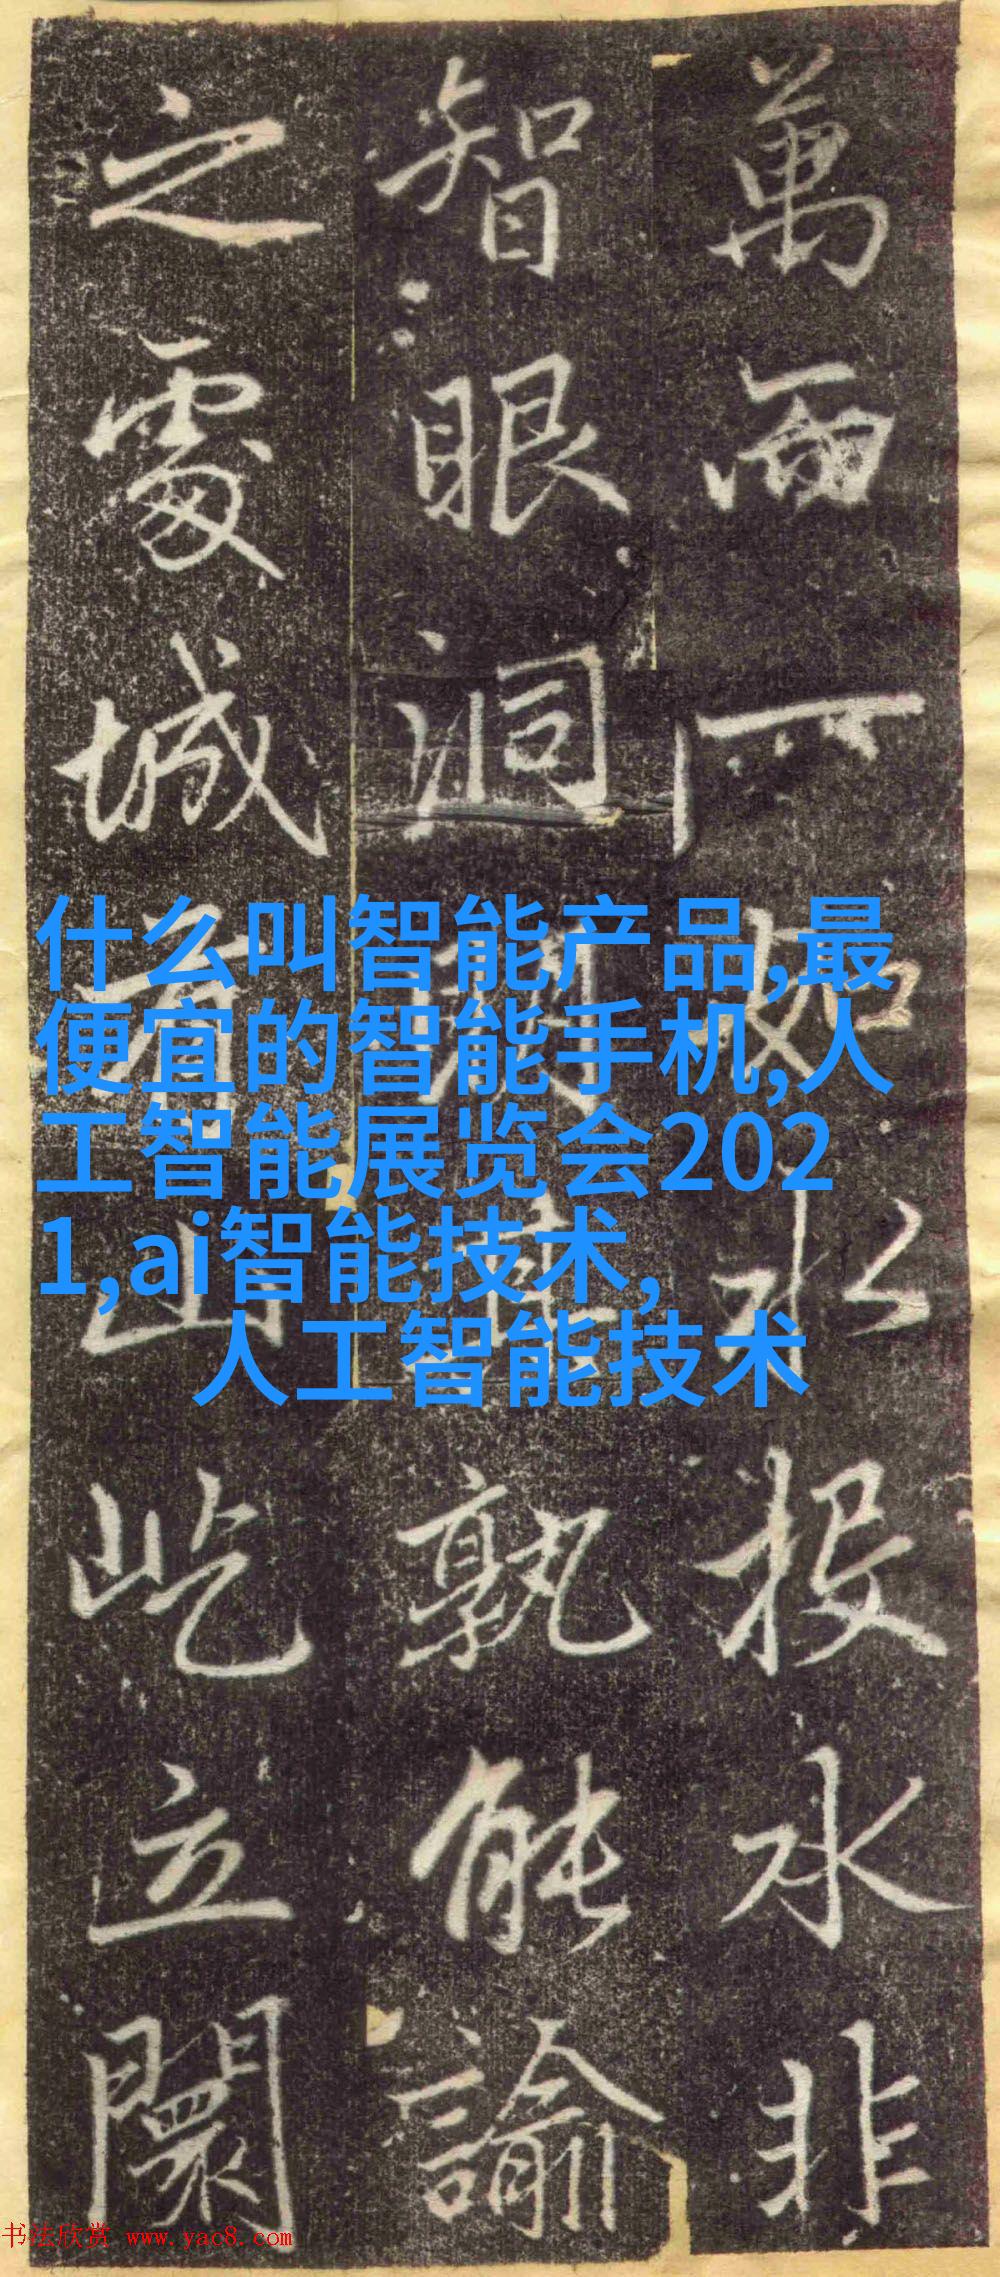 萬而一如水投水非
智眼洞孰能諭
之處城有山屹立闤
什么叫智能产品,最
便宜的智能手机,人
工智能展览会202
1,ai智能技术,
人工智能技术
书法欣赏 www.yac8.com